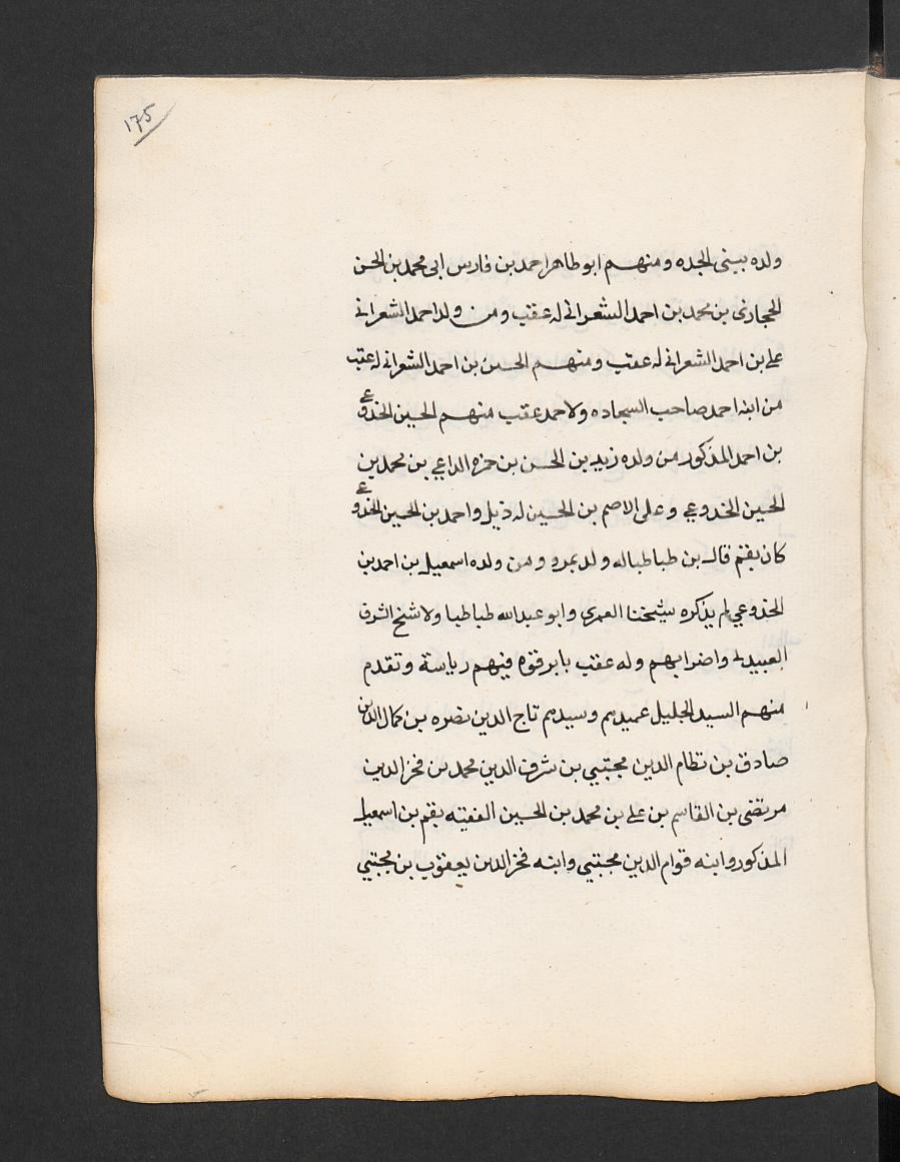 175
ولده ببنى الجده ومنهم ابو طاهر احمد بن فارس ابى محمد بن الحسن
الحجازى بن محمد بن احمد الشعرانى له عقب ومن ولد احمد الشعرانى
على بن احمد الشعرانى له عقب ومنهم الحسن بن احمد الشعرانى له عقب
من ابنه احمد صاحب السجاده ولاحمد عقب منهم الحسين الخدوعي
بن احمد المذكور من ولده زيد بن الحسن بن حمزه الداعي بن محمد بن
الحسين الخدوعي وعلى الاصم بن الحسين له ذيل واحمد بن الحسين الخدوعي
كان بقم قال بن طباطبا له ولد بمرو ومن ولده اسمعيل بن احمد بن
الخدوعي لم يذكره شيخنا العمرى وابو عبدالله طباطبا ولا شيخ الشرف
العبيدلى واضرابهم وله عقب بابرقوه فيهم رياسة وتقدم
منهم السيد الجليل عميدهم وسيدهم تاج الدين نصره بن كمال الدين
صادق بن نظام الدين مجتبي بن شرف الدين محمد بن فخر الدين
مرتضى بن القاسم بن على بن محمد بن الحسين الفقيه بقم بن اسمعيل
المذكور وابنه قوام الدين مجتبي وابنه فخر الدين يعقوب بن مجتبي